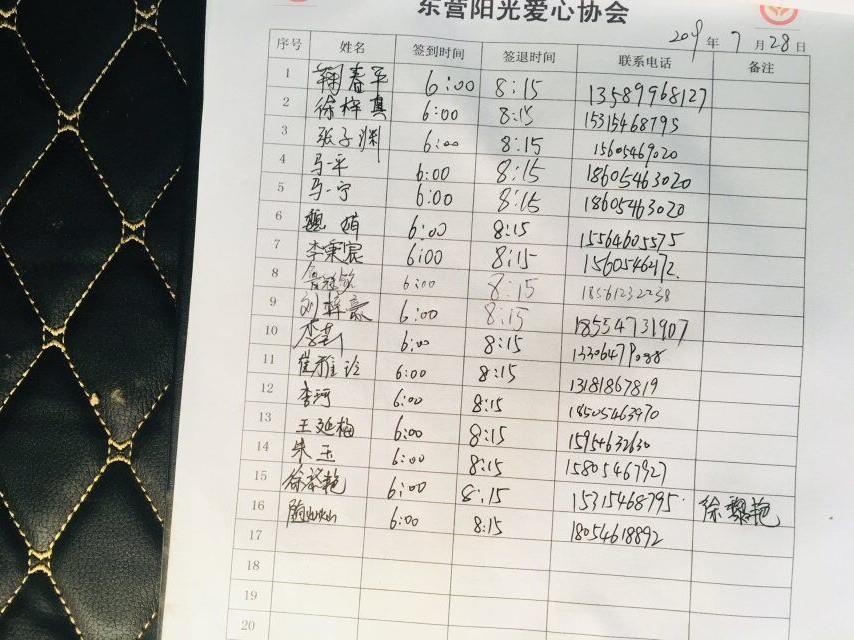 东营阳光爱心协会
2019年7月28日
序号 姓名 签到时间 签退时间 联系电话 备注
1 鞠春平 6:00 8:15 13589968127
2 徐梓真 6:00 8:15 15315468795
3 张子渊 6:00 8:15 15605469020
4 马一平 6:00 8:15 18605463020
5 马一宁 6:00 8:15 18605463020
6 魏娟 6:00 8:15 15564605575
7 李秉宸 6:00 8:15
8 6:00 8:15 18561232238
9 刘梓豪 6:00 8:15 18554731907
10 6:00 8:15
11 崔雅玲 6:00 8:15 13181867819
12 李珂 6:00 8:15 18505463970
13 王延梅 6:00 8:15 15954632630
14 朱玉 6:00 8:15 15805467927
15 徐黎艳 6:00 8:15 15315468795 徐黎艳
16 6:00 8:15 18054618892
17
18
19
20